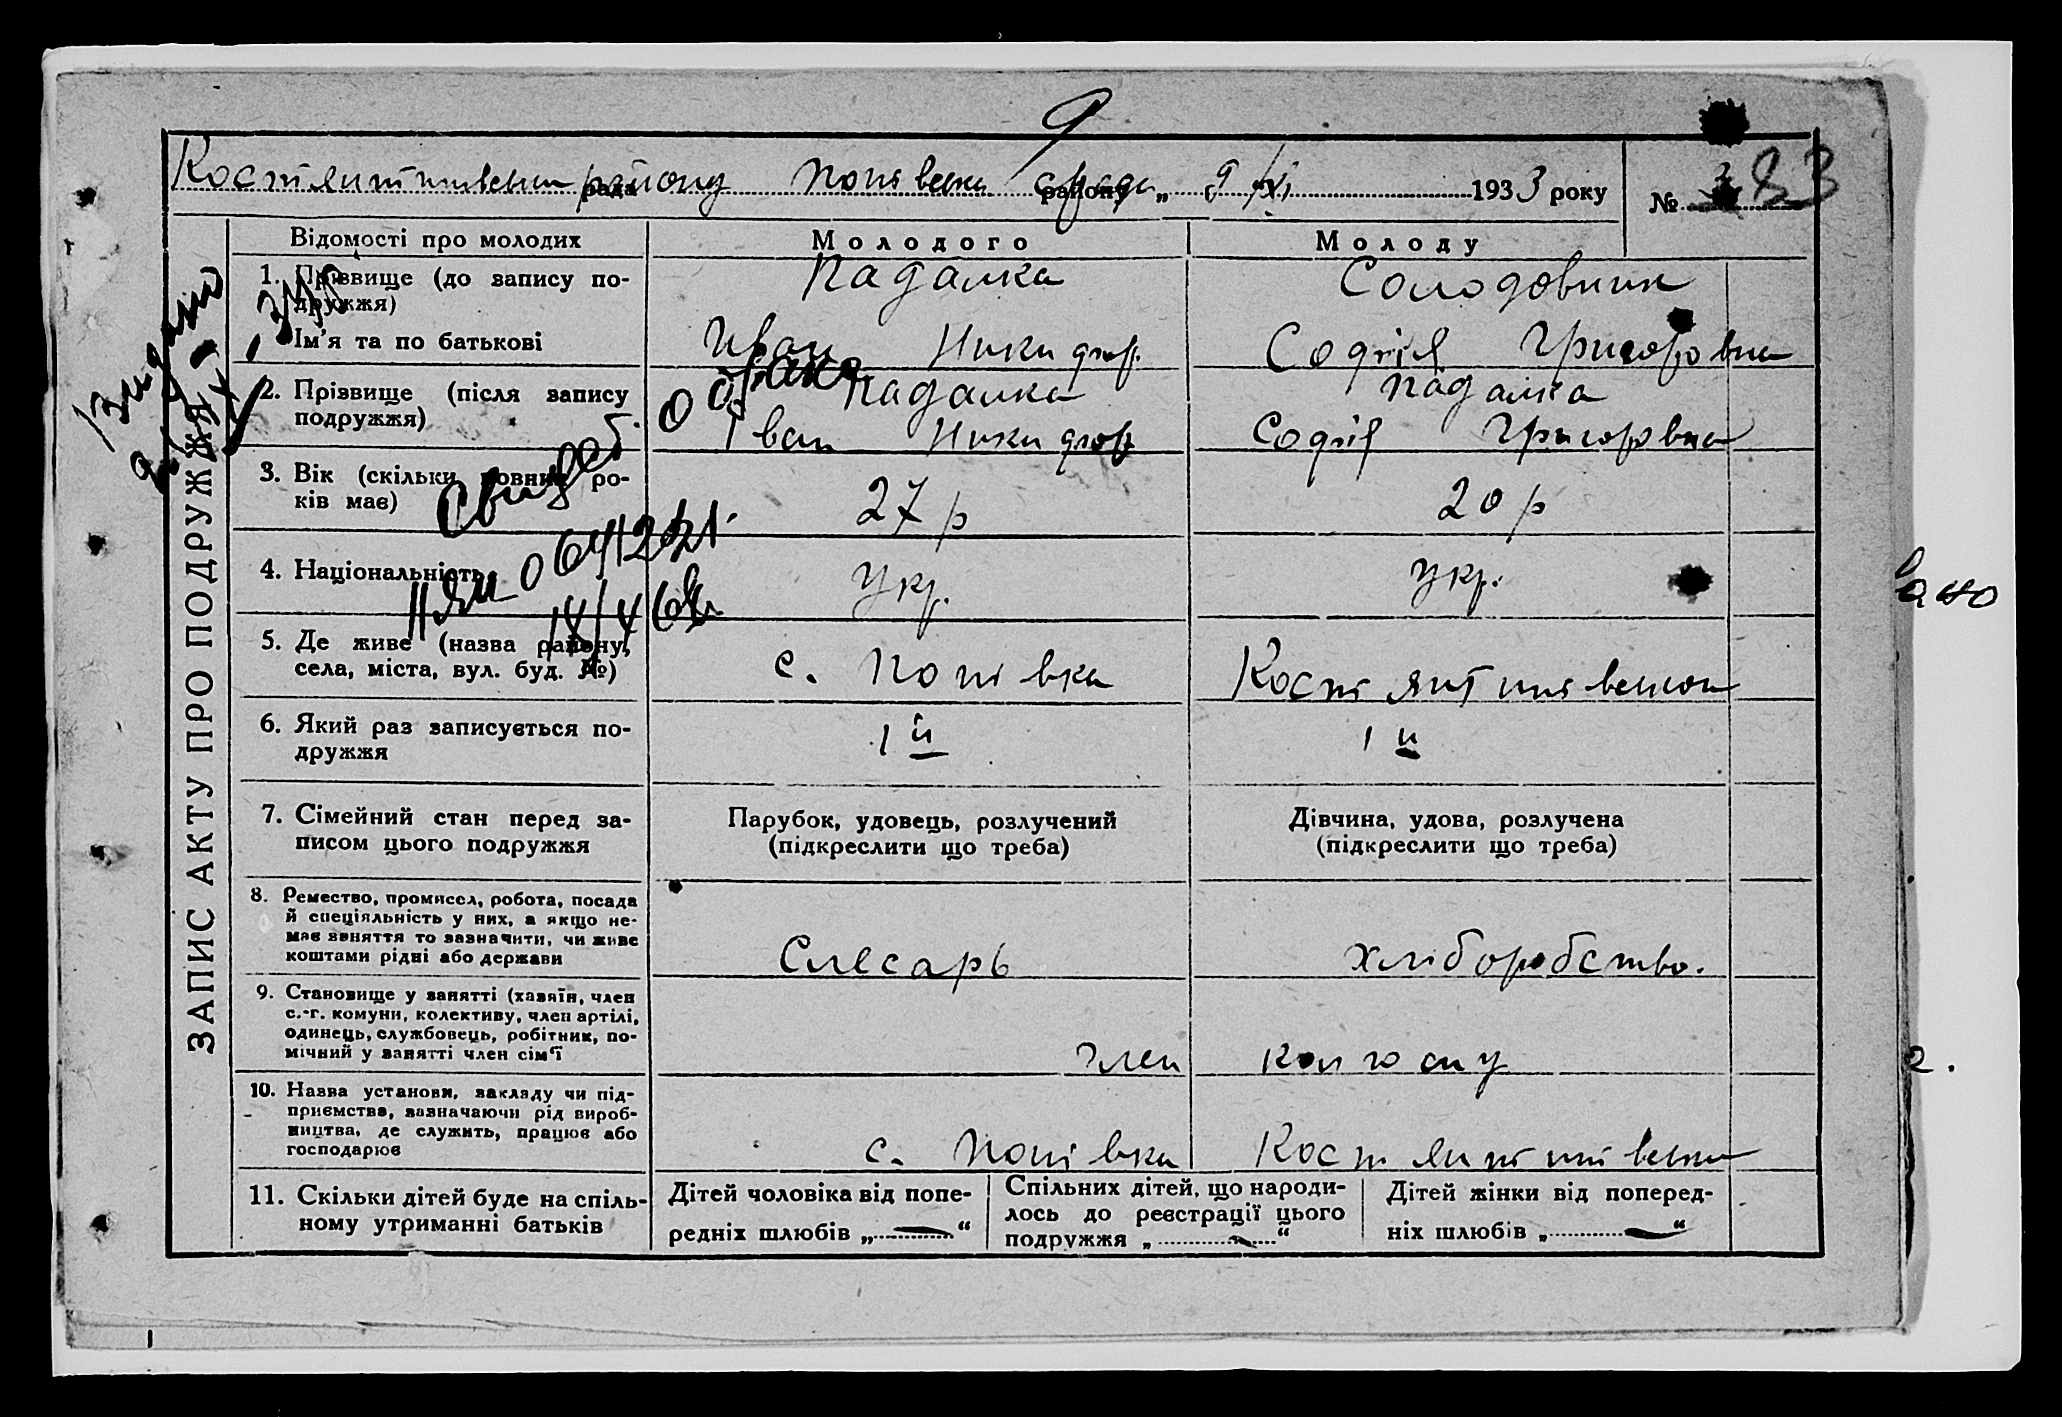 9
Костянтинівськ району Попівська с/рада „ 9 / XI 1933 року № 3 83
рада району
ЗАПИС АКТУ ПРО ПОДРУЖЖЯ
Відомості про молодих Молодого Молоду
1. Прізвище (до запису по-
дружжя) Падалка Солодовник
Ім'я та по батькові Иван Никиф. Софія Григоровна
2. Прізвище (після запису
подружжя) Падалка Падалка
Іван Никиф Софія Григоровна
о браке
свидет.
II ЯМ 064126
3. Вік (скільки повних ро-
ків має) 27 р 20 р
4. Національність укр. укр.
5. Де живе (назва району,
села, міста, вул. буд. №) с. Попівка Костянтинівськ
6. Який раз записується по-
дружжя 1й 1й
7. Сімейний стан перед за-
писом цього подружжя
Парубок, удовець, розлучений
(підкреслити що треба)
Дівчина, удова, розлучена
(підкреслити що треба)
8. Ремество, промисел, робота, посада
й спеціяльність у них, а якщо не-
має заняття то зазначити, чи живе
коштами рідні або держави
Слесарь хліборобство.
9. Становище у занятті (хазяїн, член
с.-г. комуни, колективу, член артілі,
одинець, службовець, робітник, по-
мічний у занятті член сім'ї
член колгоспу
10. Назва установи, закладу чи під-
приємства, зазначаючи рід вироб-
ництва, де служить, працює або
господарює
с. Попівка Костянтинівськ
11. Скільки дітей буде на спіль-
ному утриманні батьків
Дітей чоловіка від попе-
редніх шлюбів „ — “
Спільних дітей, що народи-
лось до реєстрації цього
подружжя „ — “
Дітей жінки від поперед-
ніх шлюбів „ — “